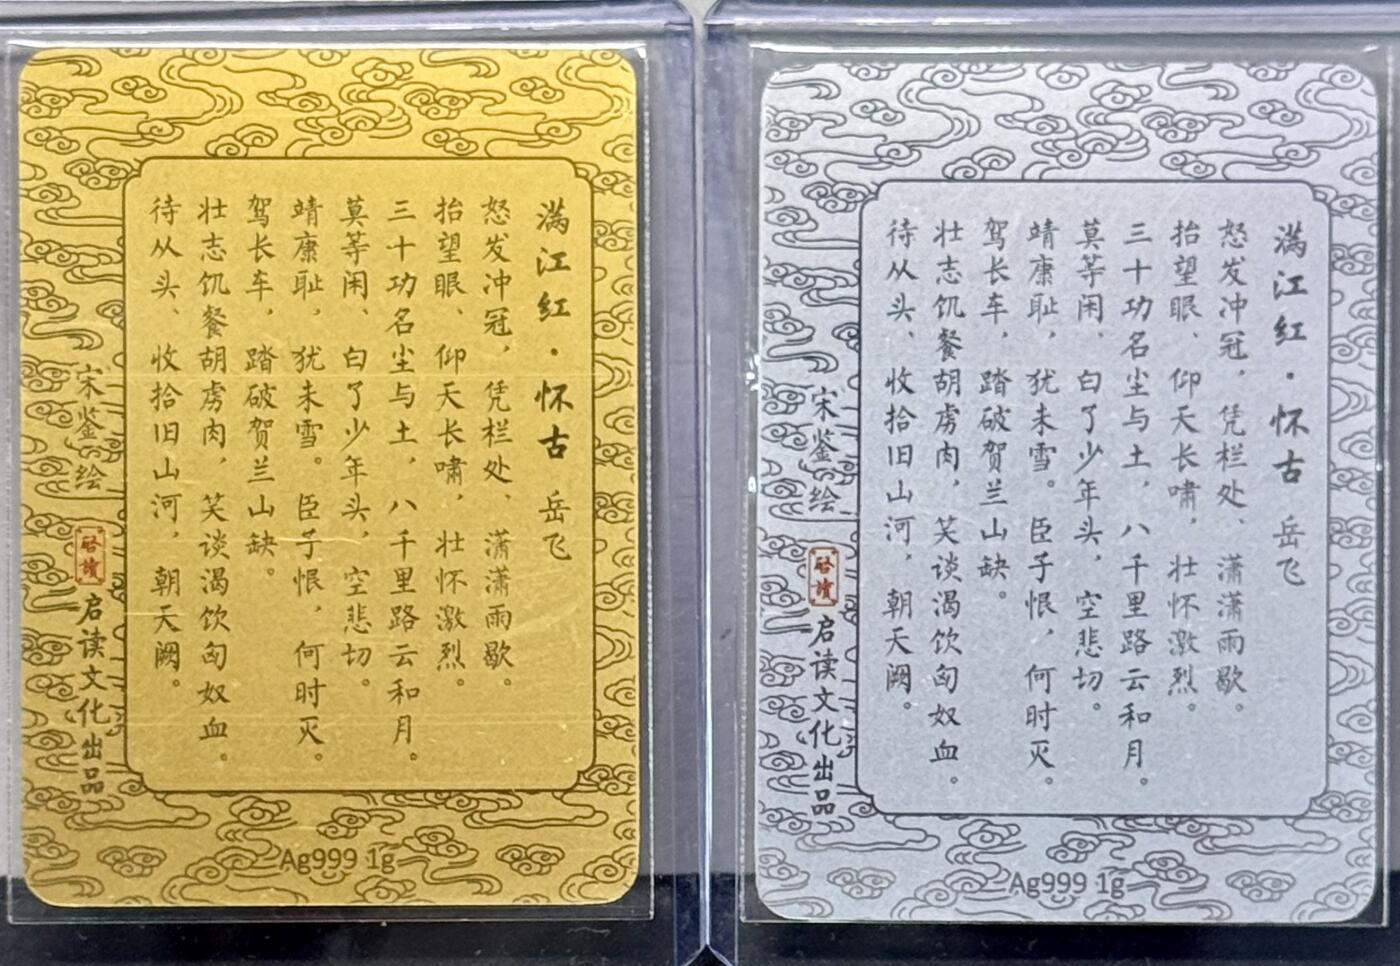 满江红·怀古 岳飞
怒发冲冠，凭栏处、潇潇雨歇。
抬望眼、仰天长啸，壮怀激烈。
三十功名尘与土，八千里路云和月。
莫等闲、白了少年头，空悲切。
靖康耻，犹未雪。臣子恨，何时灭。
驾长车，踏破贺兰山缺。
壮志饥餐胡虏肉，笑谈渴饮匈奴血。
待从头、收拾旧山河，朝天阙。
宋鉴绘
启读
启读文化出品
Ag999 1g
满江红·怀古 岳飞
怒发冲冠，凭栏处、潇潇雨歇。
抬望眼、仰天长啸，壮怀激烈。
三十功名尘与土，八千里路云和月。
莫等闲、白了少年头，空悲切。
靖康耻，犹未雪。臣子恨，何时灭。
驾长车，踏破贺兰山缺。
壮志饥餐胡虏肉，笑谈渴饮匈奴血。
待从头、收拾旧山河，朝天阙。
宋鉴绘
启读
启读文化出品
Ag999 1g